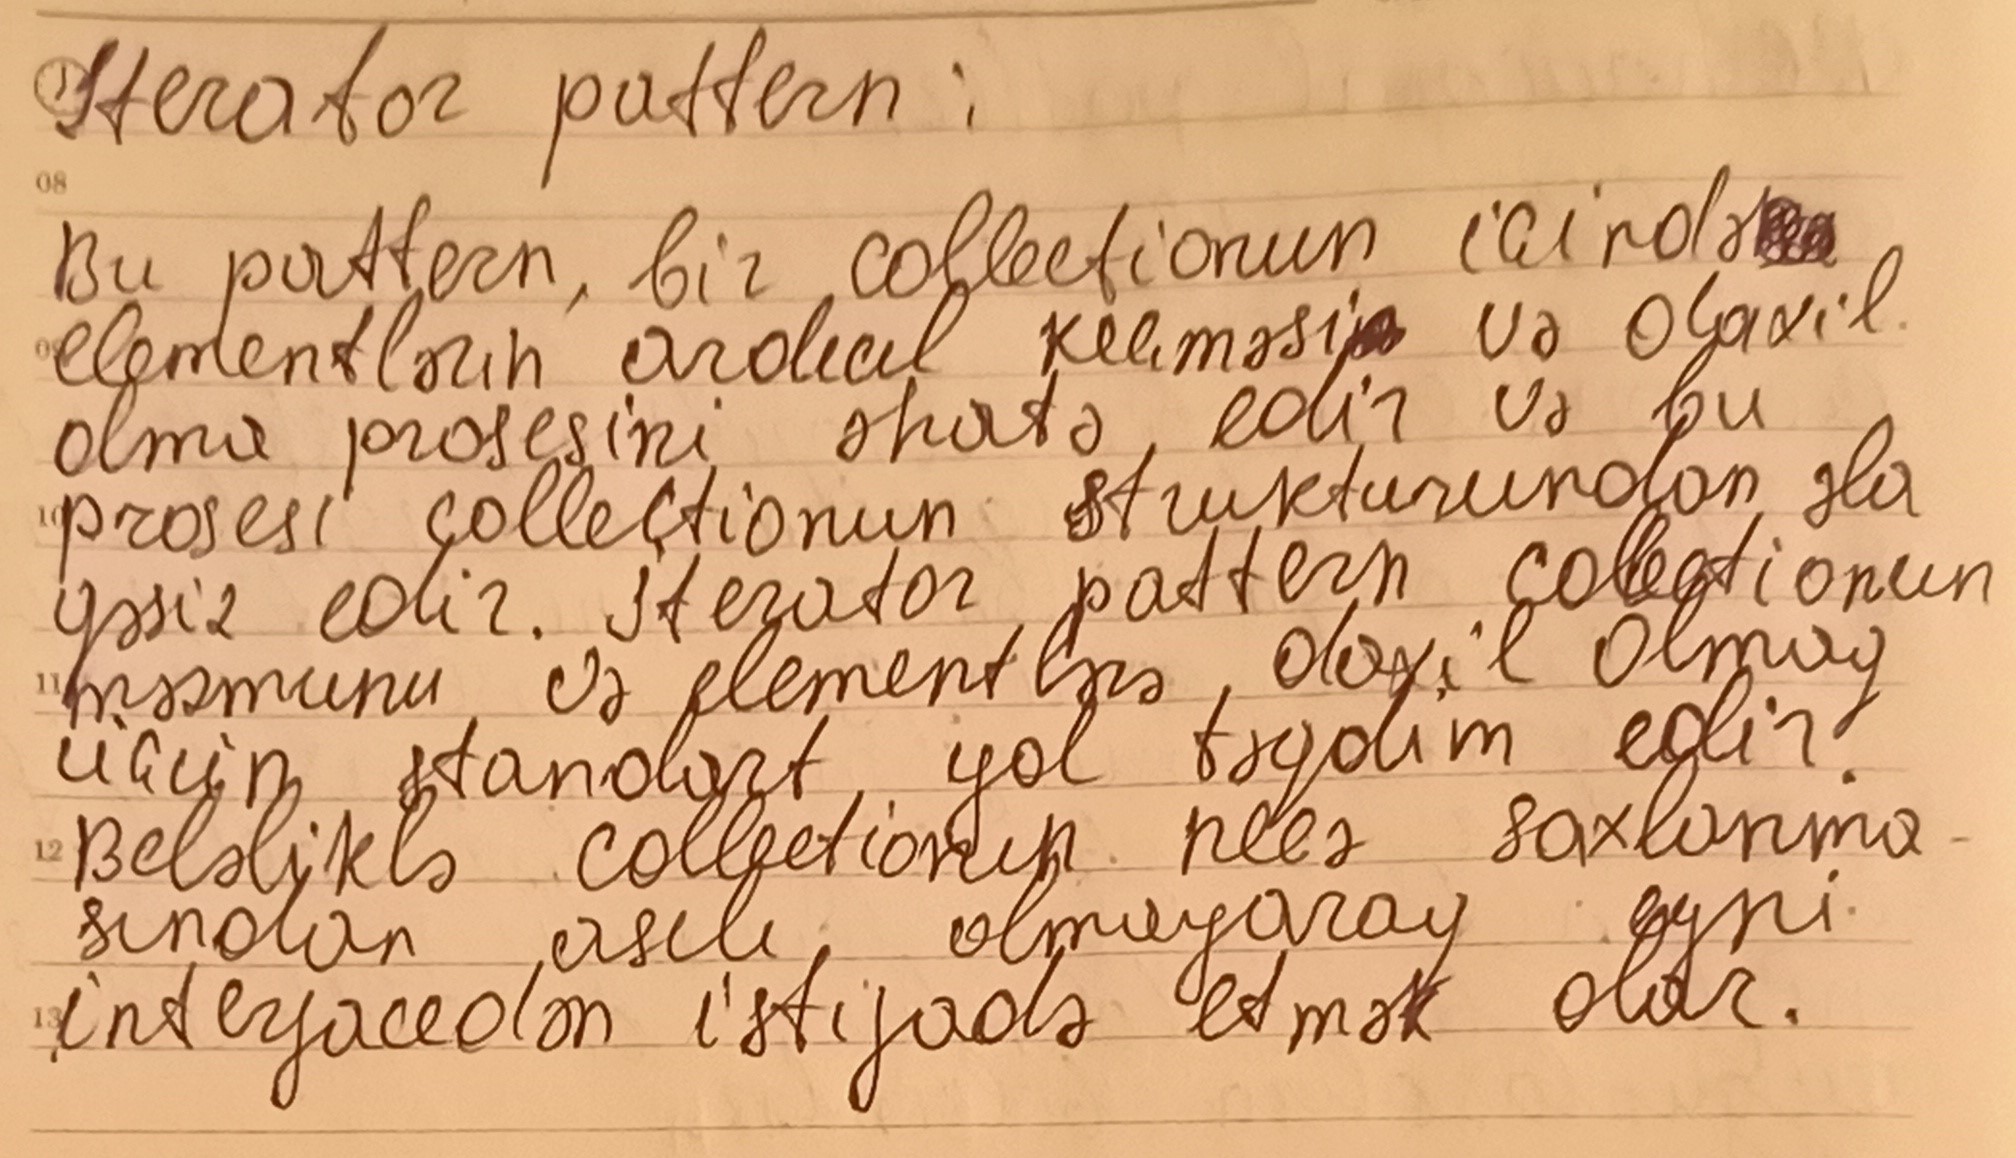 Iterator pattern:
08
Bu pattern, bir collectionun içində
09 elementlərin ardıcıl keçməsi və daxil
olma prosesini əhatə edir və bu
10 prosesi collectionun strukturundan əla
qəsiz edir. Iterator pattern collectionun
11 məzmunu və elementlərə daxil olmaq
üçün standart yol təqdim edir.
12 Beləliklə collectionun necə saxlanma-
sından asılı olmayaraq eyni
13 interfacedən istifadə etmək olar.